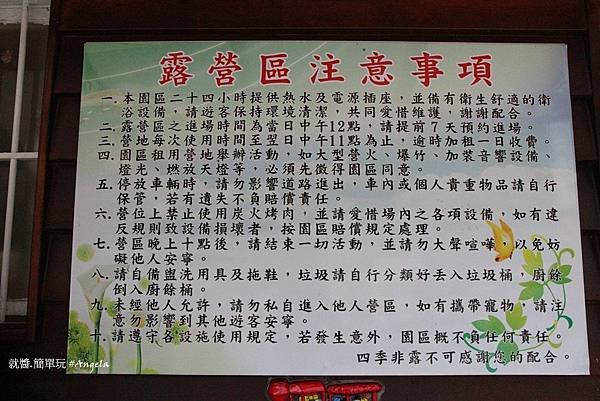 露營區注意事項
一.本園區二十四小時提供熱水及電源插座，並備有衛生舒適的衛
浴設備，請遊客保持環境清潔，共同愛惜維護，謝謝配合。
二.露營區之進場時間為當日中午12點，請提前7天預約進場。
三.營地每次使用時間至翌日中午11點為止，逾時加租一日收費。
四.園區租用營地舉辦活動，如大型營火、爆竹、加裝音響設備、
燈光、燃放天燈等，必須先徵得園區同意。
五.停放車輛時，請勿影響道路進出，車內或個人貴重物品請自行
保管，若有遺失不負賠償責任。
六.營位上禁止使用炭火烤肉，並請愛惜場內之各項設備，如有違
反規則致設備損壞者，按園區賠償規定處理。
七.營區晚上十點後，請結束一切活動，並請勿大聲喧嘩，以免妨
礙他人安寧。
八.請自備盥洗用具及拖鞋，垃圾請自行分類好丟入垃圾桶，廚餘
倒入廚餘桶。
九.未經他人允許，請勿私自進入他人營區，如有攜帶寵物，請注
意勿影響到其他遊客安寧。
十.請遵守各設施使用規定，若發生意外，園區概不負任何責任。
四季非露不可感謝您的配合。
就醬.簡單玩 #Angela